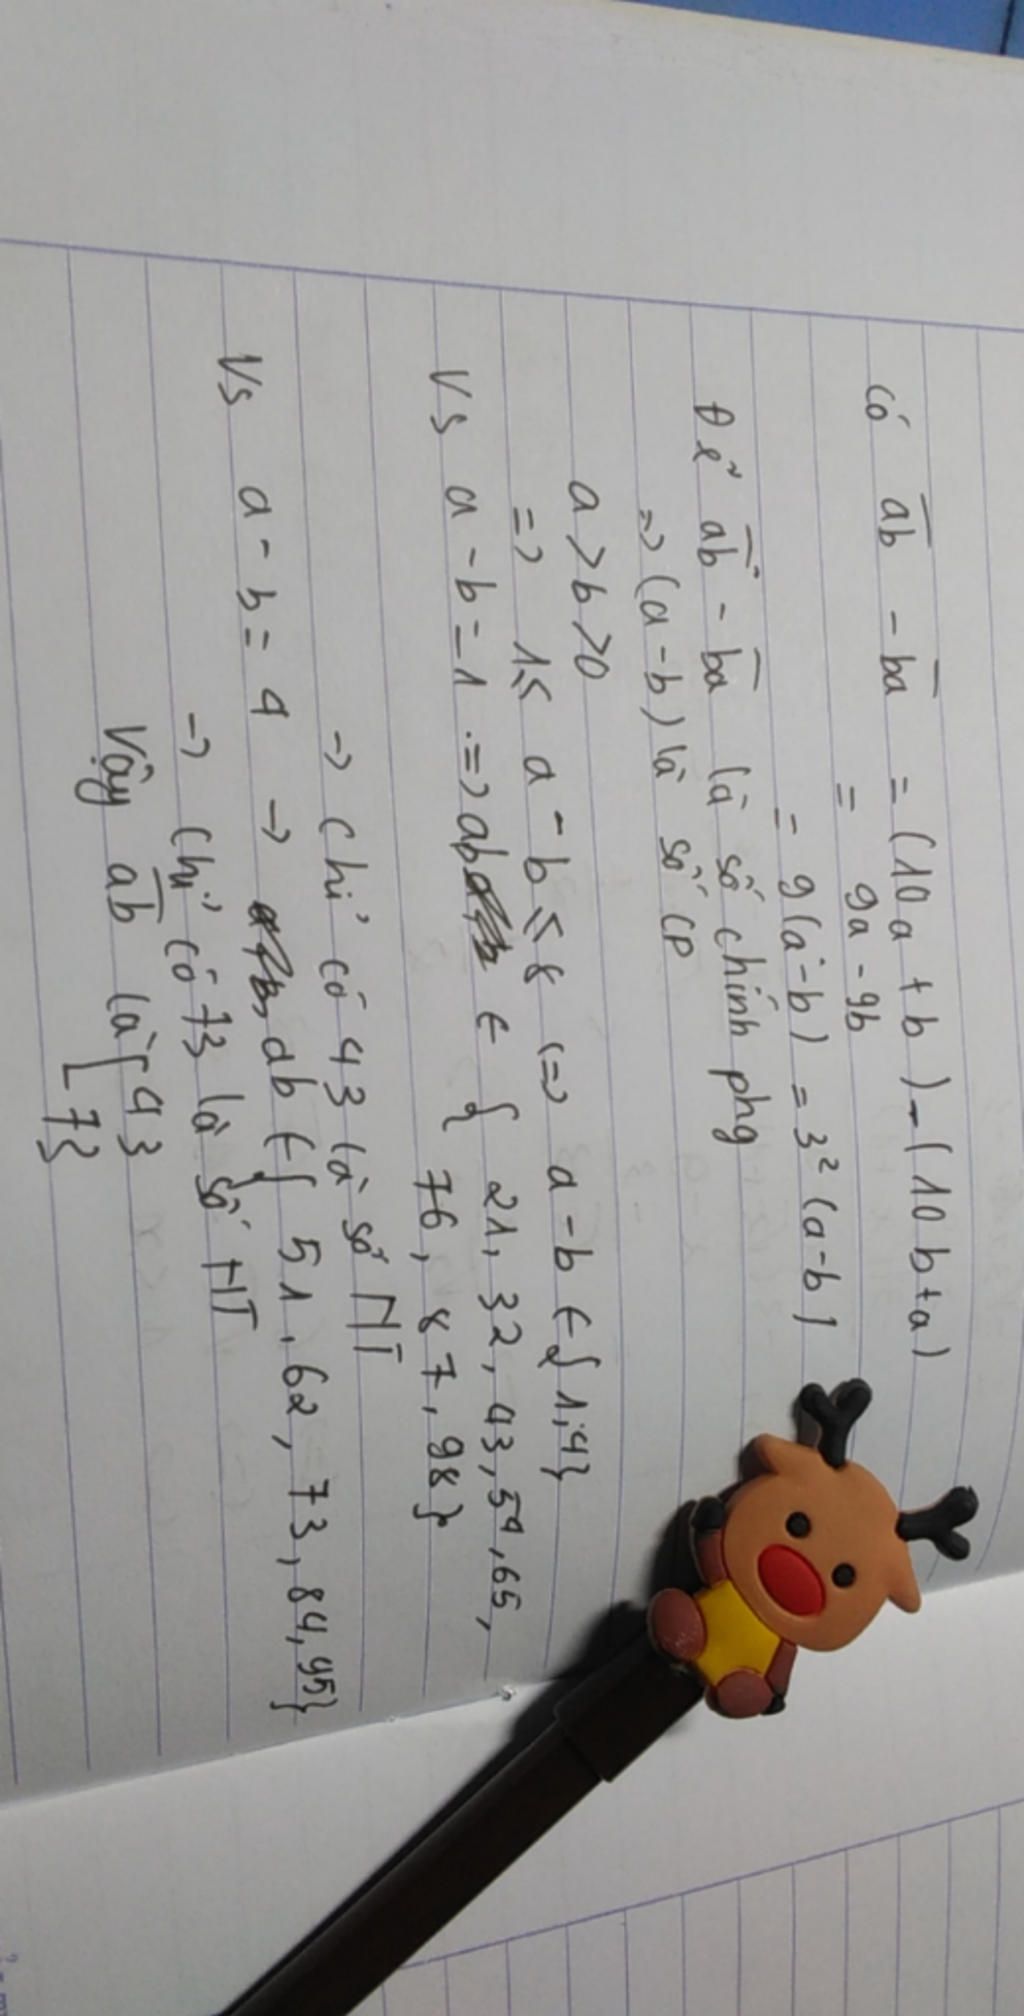 có ab̅ - ba̅ = (10a + b) - (10b+a)
= 9a - 9b
= 9(a-b) = 3² (a-b)
Để ab̅ - ba̅ là số chính phg
=> (a-b) là số CP
a > b > 0
=> 1 ≤ a - b ≤ 8 (=> a - b ∈ {1;4}
Vs a - b = 1 => ab ∈ { 21, 32, 43, 54, 65,
76, 87, 98}
-> chỉ có 43 là số NT
Vs a - b = 4 -> ab ∈ { 51, 62, 73, 84, 95}
-> chỉ có 73 là số NT
Vậy ab̅ là [ 43
73